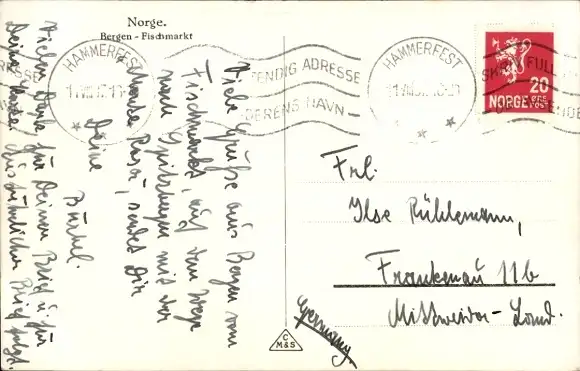 Norge.
Bergen - Fischmarkt
HAMMERFEST
HAMMERFEST
ENDIG ADRESSE
DERENS NAVN
SKRIV FULL
20
ØRE
NORGE
POST
Viele Grüße aus Bergen vom
Fischmarkt, auf dem Wege
nach Spitzbergen mit der
"Monte Rosa", sendet Dir
Deine
Bärbel.
Vielen Dank für Deinen Brief u. für
Deine Karte. Ausführlicher Brief folgt.
Frl.
Ilse Rühlemann,
Frankenau 11b
Mittweida-Land.
Germany.
C
M&S